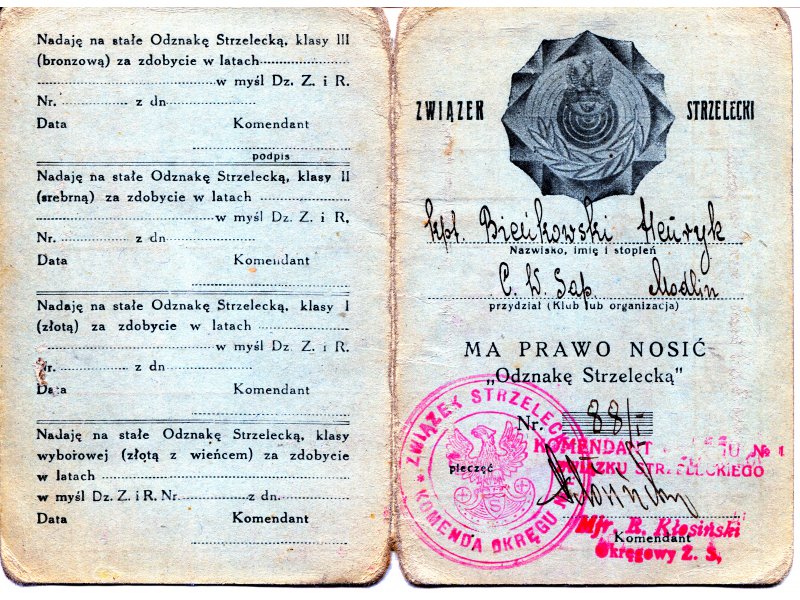 Nadaję na stałe Odznakę Strzelecką, klasy III
(bronzową) za zdobycie w latach
w myśl Dz. Z. i R.
Nr. z dn
Data Komendant
podpis
Nadaję na stałe Odznakę Strzelecką, klasy II
(srebrną) za zdobycie w latach
w myśl Dz. Z. i R.
Nr. z dn
Data Komendant
Nadaję na stałe Odznakę Strzelecką, klasy I
(złotą) za zdobycie w latach
w myśl Dz. Z. i R.
Nr. z dn
Data Komendant
Nadaję na stałe Odznakę Strzelecką, klasy
wyboiowej (złotą z wieńcem) za zdobycie
w latach
w myśl Dz. Z. i R. Nr. z dn.
Data Komendant
ZWIĄZEK STRZELECKI
kpt. Bieńkowski Henryk
Nazwisko, imię i stopień
C. W. Sap. Modlin
przydział (Klub lub organizacja)
MA PRAWO NOSIĆ
„Odznakę Strzelecką"
Nr. 88/I
KOMENDANT № 1
ZWIĄZKU STRZELECKIEGO
pieczęć
ZWIĄZEK STRZELECKI
KOMENDA OKRĘGU
Mjr. R. Kłosiński
Komendant
Okręgowy Z. S,